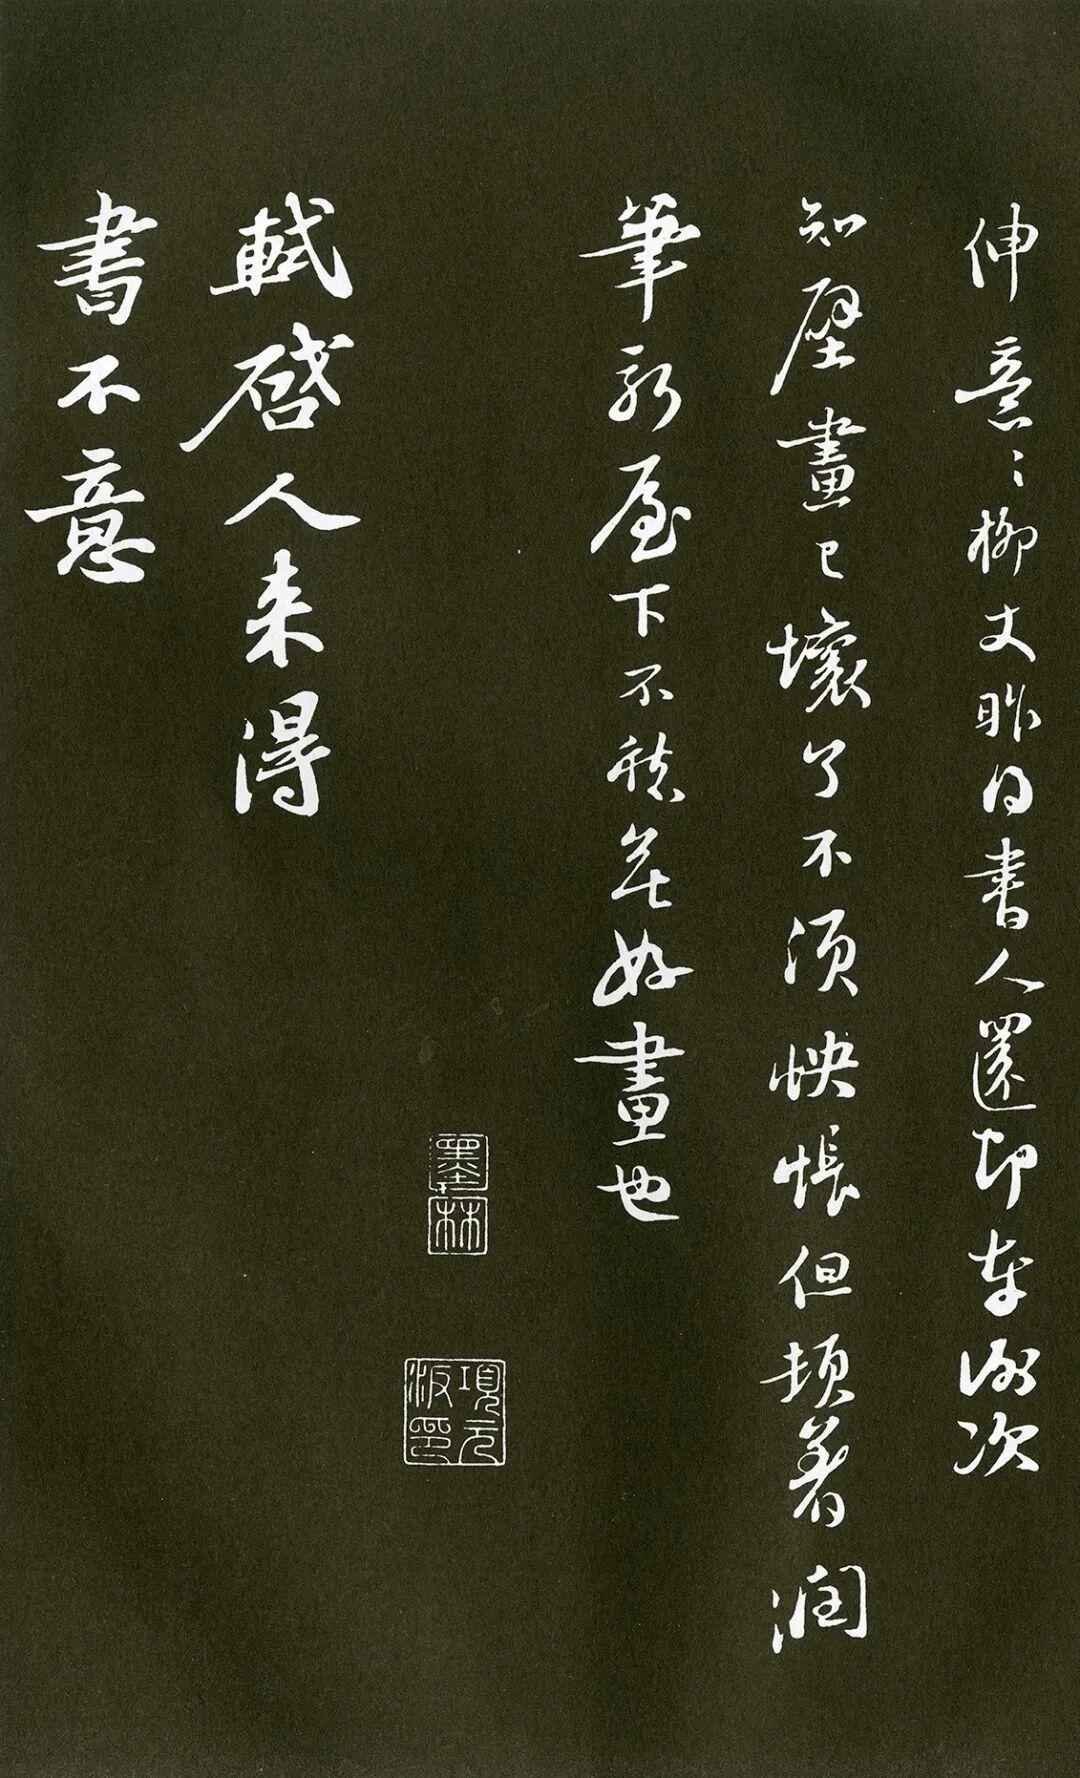 伸意〻柳丈昨得書人還即奉謝次
知壁畫已壞了不須怏悵但頓著潤
筆新屋下不愁無好畫也
墨林
項元汴印
軾啓人來得
書不意